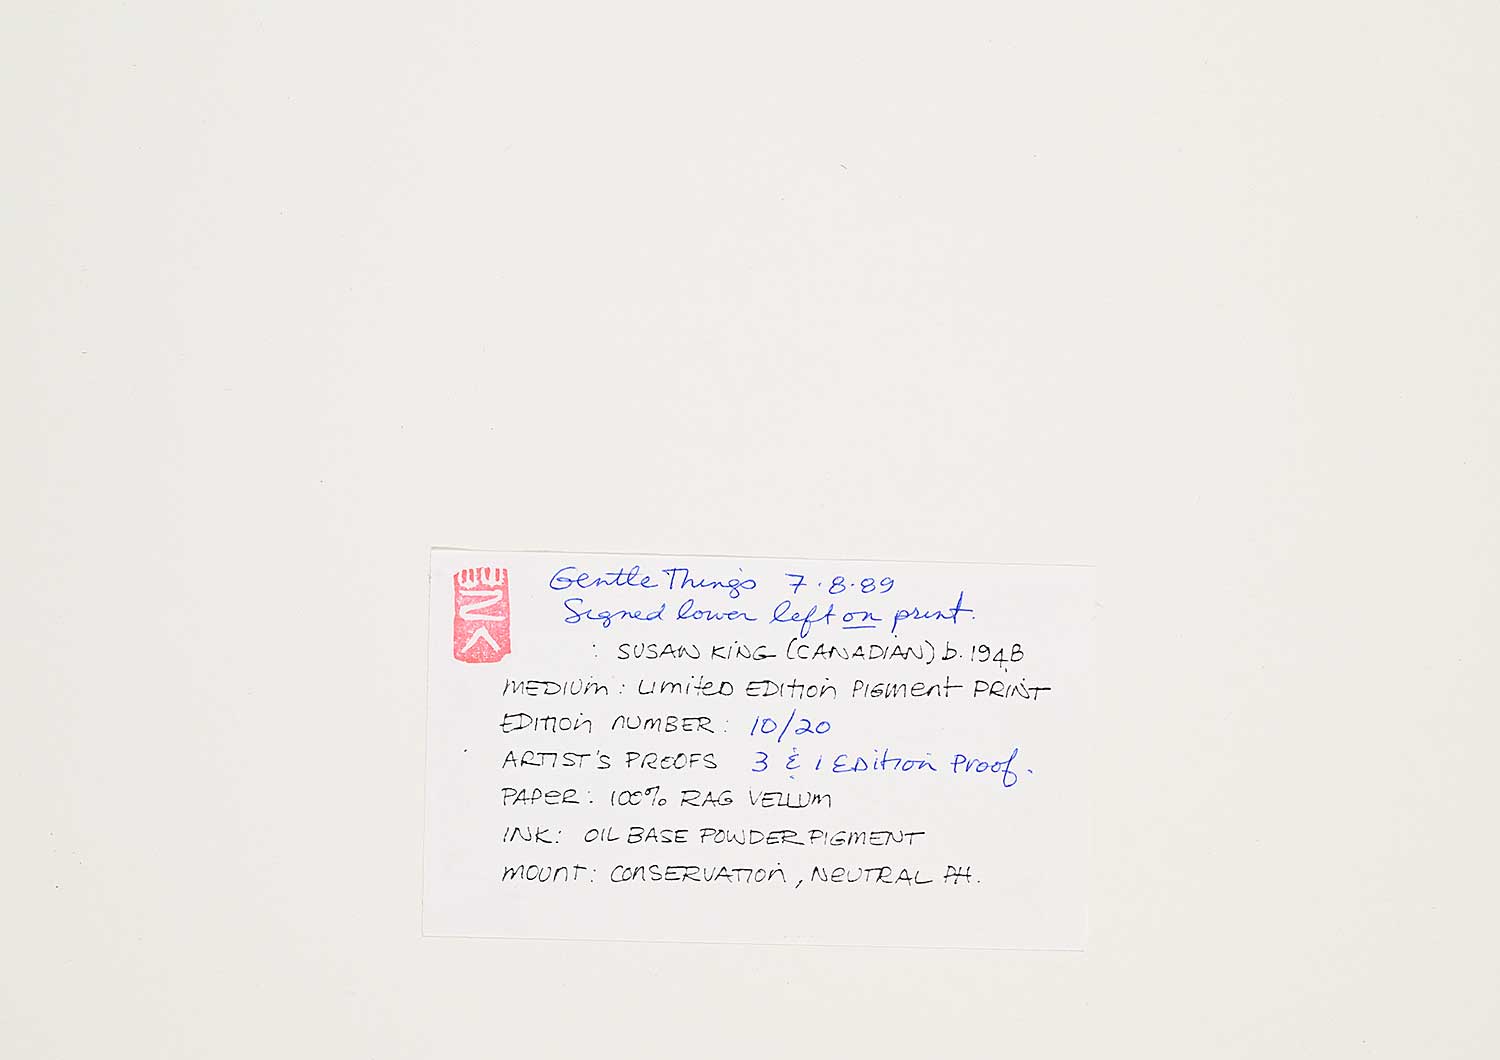 Gentle Things 7.8.89
Signed lower left on print.
: SUSAN KING (CANADIAN) b. 1948
MEDIUM: LIMITED EDITION PIGMENT PRINT
EDITION NUMBER: 10/20
ARTIST'S PROOFS 3 & 1 EDITION PROOF.
PAPER: 100% RAG VELLUM
INK: OIL BASE POWDER PIGMENT
MOUNT: CONSERVATION, NEUTRAL PH.